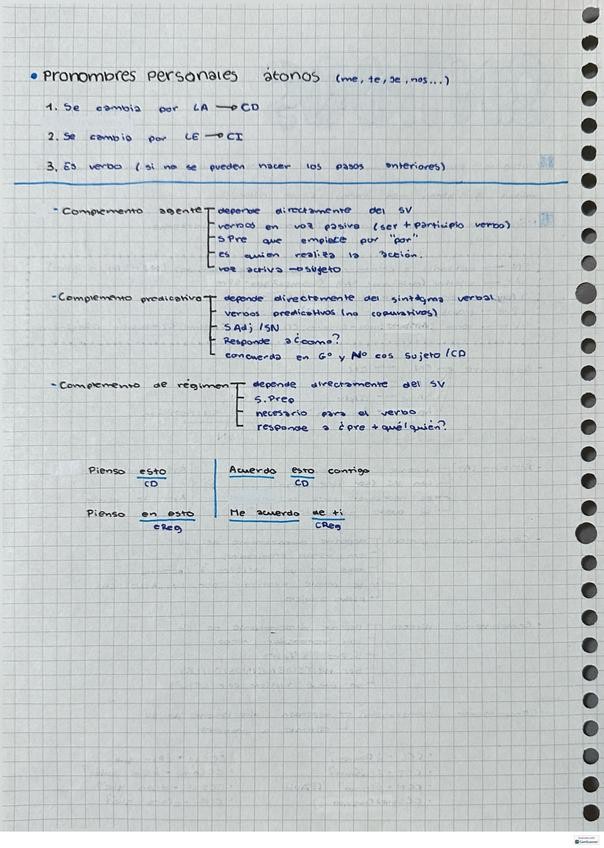 • Pronombres personales átonos (me, te, se, nos...)
1. Se cambia por LA → CD
2. Se cambia por LE → CI
3. Es verbo (si no se pueden hacer los pasos anteriores)
- Complemento agente
depende directamente del SV
verbos en voz pasiva (ser + participio verbo)
SPre que empiece por "por"
es quien realiza la acción.
voz activa → sujeto
- Complemento predicativo
depende directamente del sintagma verbal
verbos predicativos (no copulativos)
SAdj / SN
Responde a ¿como?
concuerda en Gº y Nº cos sujeto / CD
- Complemento de régimen
depende directamente del SV
S.Prep
necesario para el verbo
responde a ¿pre + qué/quién?
Pienso esto
CD
Pienso en esto
CReg
Acuerdo esto contigo
CD
Me acuerdo de ti
CReg
CamScanner